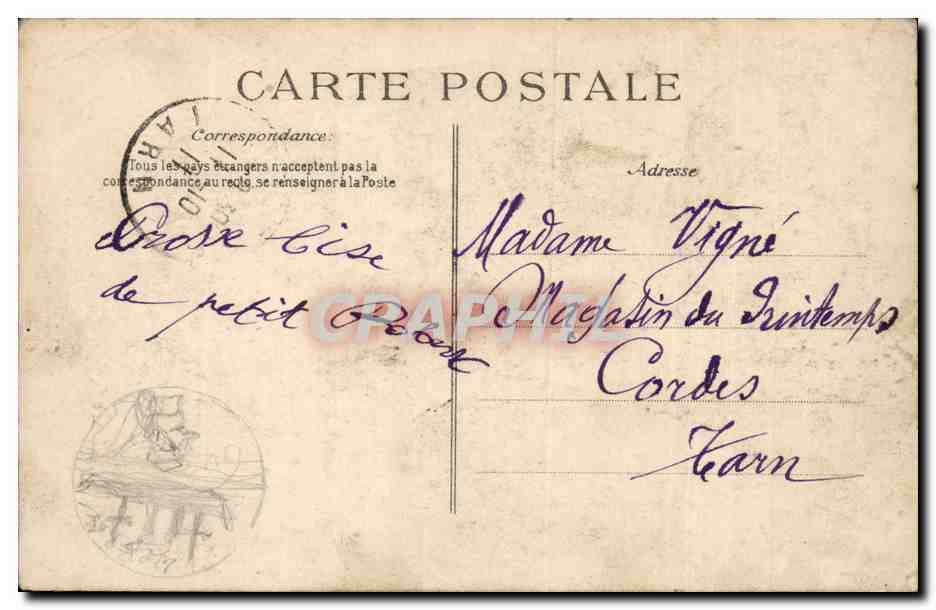 CARTE POSTALE
TARN
Correspondance:
Tous les pays étrangers n'acceptent pas la
correspondance au recto, se renseigner à la Poste
Grosse bise
de petit Robert
Adresse
Madame Vigné
Magasin du Printemps
Cordes
Tarn
CRAPHIL